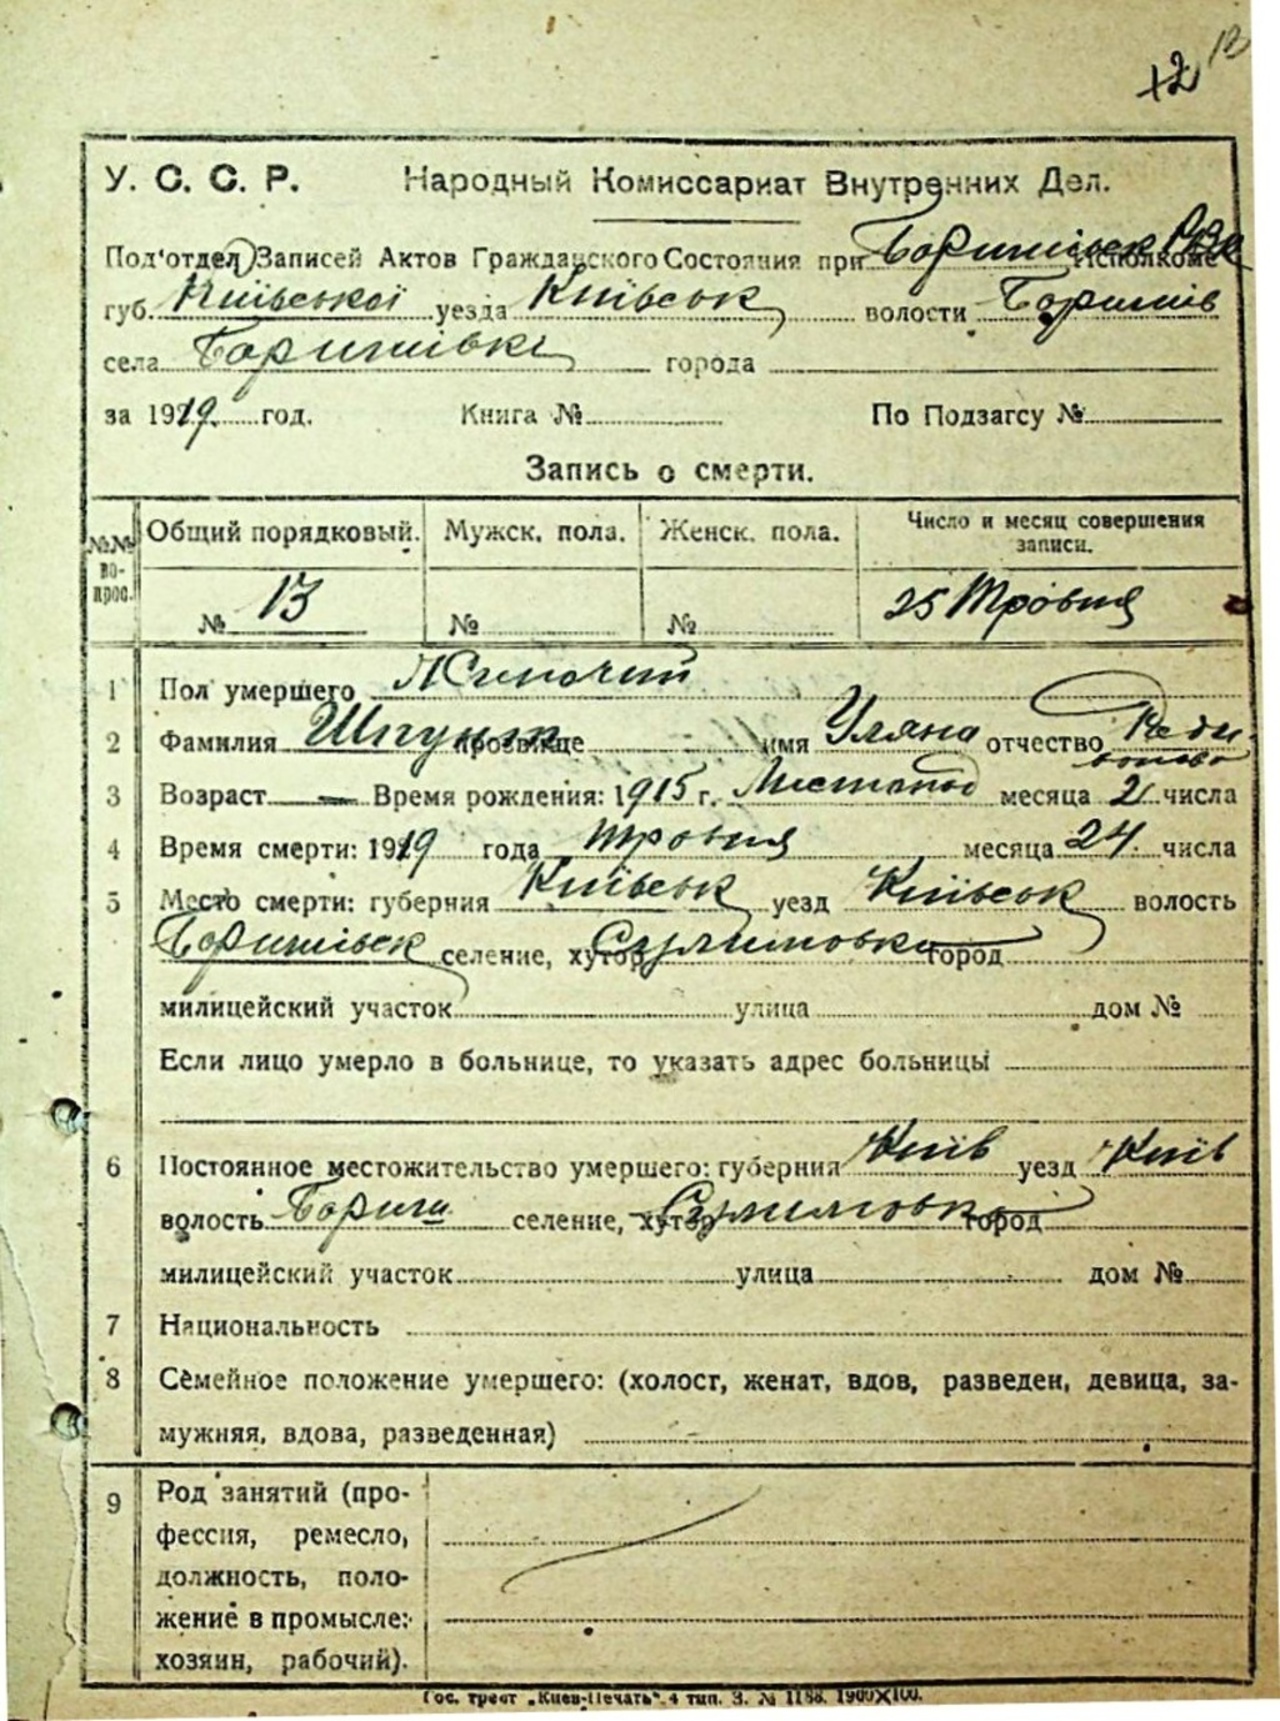 12
12
У. С. С. Р. Народный Комиссариат Внутренних Дел.
Под'отдел Записей Актов Гражданского Состояния при Баришівськ РВК Исполкоме
губ. Київської уезда Київськ волости Баришів
села Баришівки города
за 1919 год. Книга № По Подзагсу №
Запись о смерти.
№№ во-прос. Общий порядковый. Мужск. пола. Женск. пола. Число и месяц совершения записи.
№ 13 № № 25 Травня
1 Пол умершего Жиночий
2 Фамилия прозвище имя Уляна отчество
3 Возраст — Время рождения: 1915 г. Листопад месяца 2 числа
4 Время смерти: 1919 года Травня месяца 24 числа
5 Место смерти: губерния Київськ уезд Київськ волость
Баришівськ селение, хутор Сулимовка город
милицейский участок улица дом №
Если лицо умерло в больнице, то указать адрес больницы
6 Постоянное местожительство умершего: губерния Київ уезд Київ
волость Бариш селение, хутор Сулимовка город
милицейский участок улица дом №
7 Национальность
8 Семейное положение умершего: (холост, женат, вдов, разведен, девица, за-
мужняя, вдова, разведенная)
9 Род занятий (про-
фессия, ремесло,
должность, поло-
жение в промысле:
хозяин, рабочий).
Гос. трест „Киев-Печать“ 4 тип. З. № 1188. 1900×100.